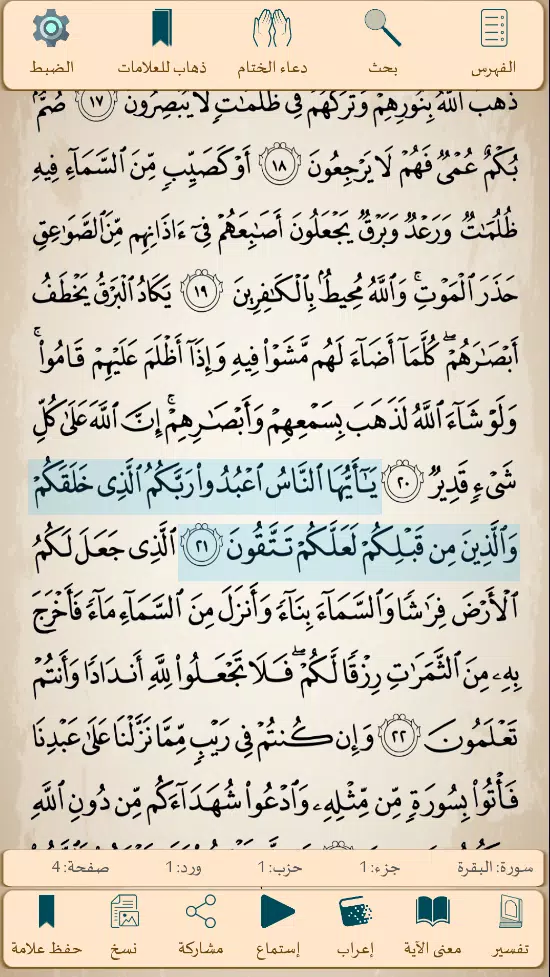 الفهرس بحث دعاء الختام ذهاب للعلامات الضبط
ذَهَبَ ٱللَّهُ بِنُورِهِمْ وَتَرَكَهُمْ فِى ظُلُمَـٰتٍ لَّا يُبْصِرُونَ ١٧ صُمٌّۢ
بُكْمٌ عُمْىٌ فَهُمْ لَا يَرْجِعُونَ ١٨ أَوْ كَصَيِّبٍ مِّنَ ٱلسَّمَآءِ فِيهِ
ظُلُمَـٰتٌ وَرَعْدٌ وَبَرْقٌ يَجْعَلُونَ أَصَـٰبِعَهُمْ فِىٓ ءَاذَانِهِم مِّنَ ٱلصَّوَٰعِقِ
حَذَرَ ٱلْمَوْتِ ۚ وَٱللَّهُ مُحِيطٌۢ بِٱلْكَـٰفِرِينَ ١٩ يَكَادُ ٱلْبَرْقُ يَخْطَفُ
أَبْصَـٰرَهُمْ ۖ كُلَّمَآ أَضَآءَ لَهُم مَّشَوْا۟ فِيهِ وَإِذَآ أَظْلَمَ عَلَيْهِمْ قَامُوا۟ ۚ
وَلَوْ شَآءَ ٱللَّهُ لَذَهَبَ بِسَمْعِهِمْ وَأَبْصَـٰرِهِمْ ۚ إِنَّ ٱللَّهَ عَلَىٰ كُلِّ
شَىْءٍ قَدِيرٌ ٢٠ يَـٰٓأَيُّهَا ٱلنَّاسُ ٱعْبُدُوا۟ رَبَّكُمُ ٱلَّذِى خَلَقَكُمْ
وَٱلَّذِينَ مِن قَبْلِكُمْ لَعَلَّكُمْ تَتَّقُونَ ٢١ ٱلَّذِى جَعَلَ لَكُمُ
ٱلْأَرْضَ فِرَٰشًا وَٱلسَّمَآءَ بِنَآءً وَأَنزَلَ مِنَ ٱلسَّمَآءِ مَآءً فَأَخْرَجَ
بِهِۦ مِنَ ٱلثَّمَرَٰتِ رِزْقًا لَّكُمْ ۖ فَلَا تَجْعَلُوا۟ لِلَّهِ أَندَادًا وَأَنتُمْ
تَعْلَمُونَ ٢٢ وَإِن كُنتُمْ فِى رَيْبٍ مِّمَّا نَزَّلْنَا عَلَىٰ عَبْدِنَا
فَأْتُوا۟ بِسُورَةٍ مِّن مِّثْلِهِۦ وَٱدْعُوا۟ شُهَدَآءَكُم مِّن دُونِ ٱللَّهِ
سورة: البقرة جزء: 1 حزب: 1 ورد: 1 صفحة: 4
تفسير معنى الآية إعراب إستماع مشاركة نسخ حفظ علامة